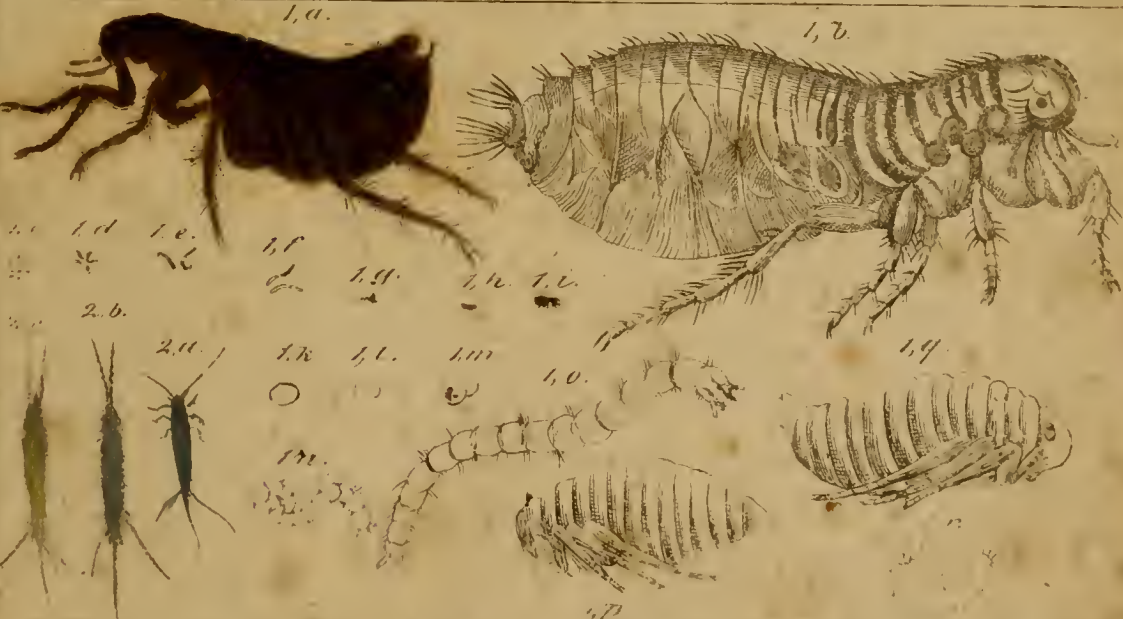 1, a.
1, b.
1. d
1. e.
1, f
1. g.
1, h.
1. i.
2. b.
2, a.
1. k
1, l.
1. m
1, o.
1, q.
1 n.
r.
1, p